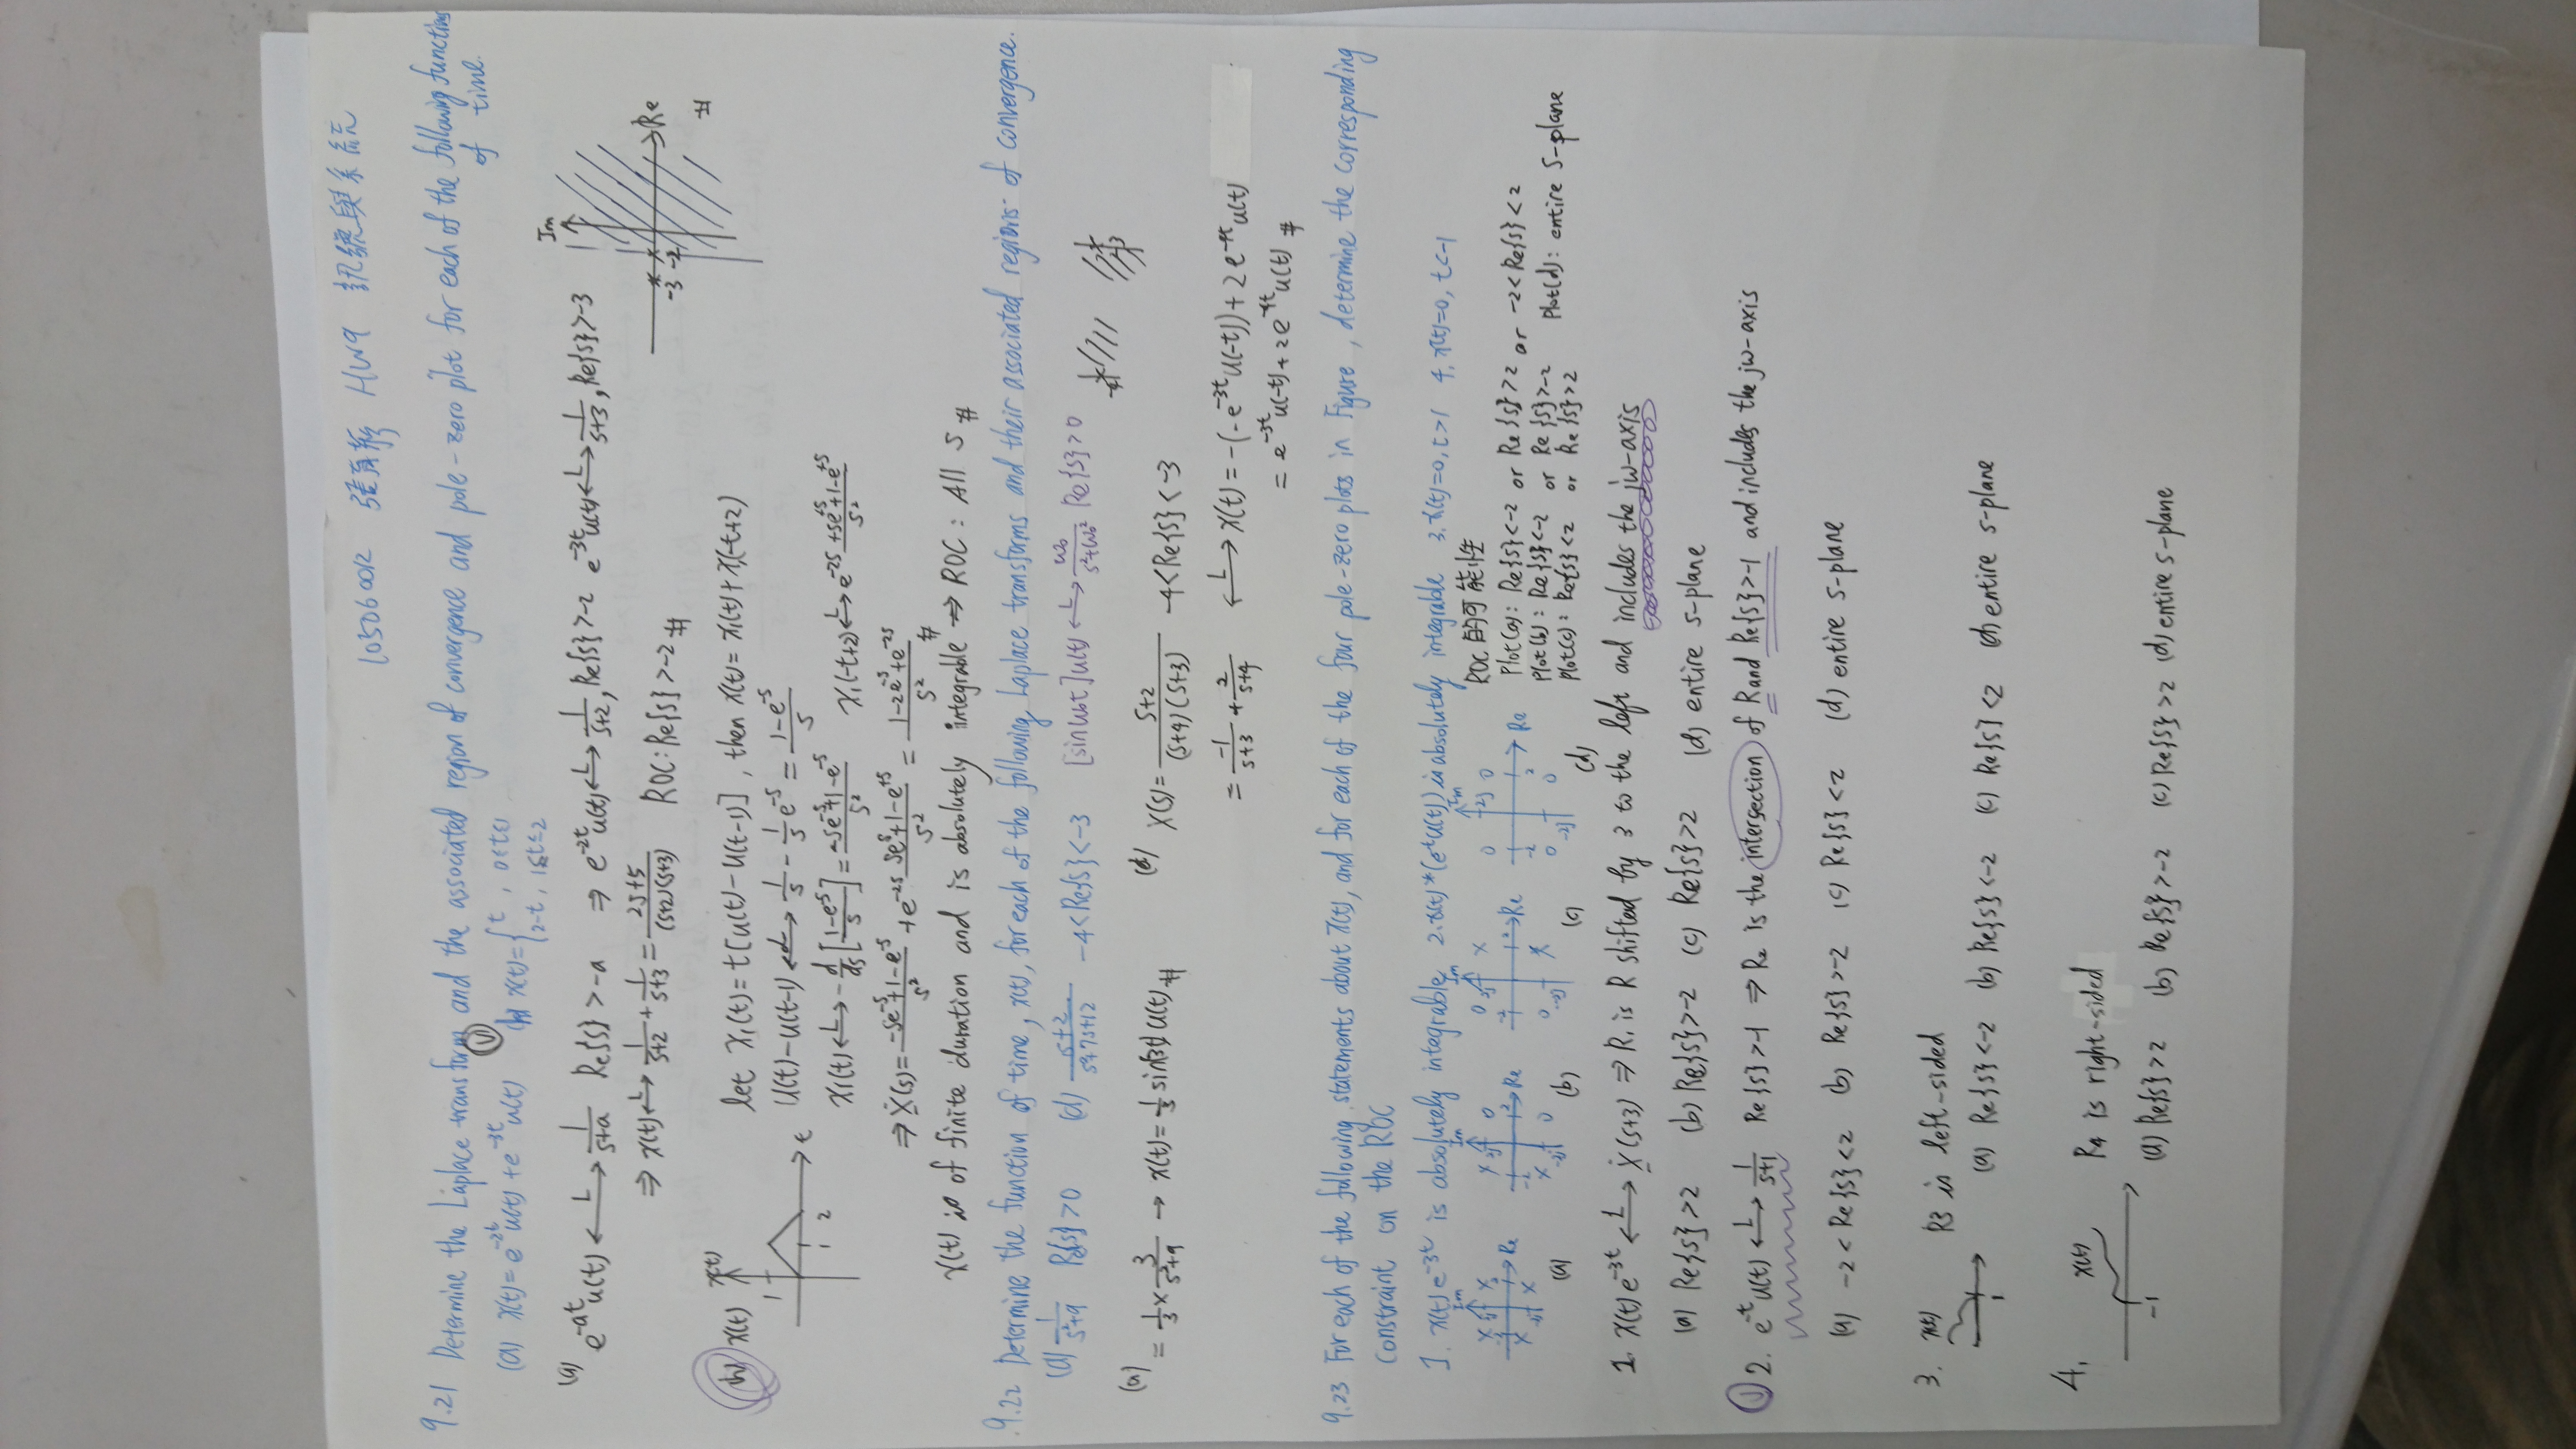 HW9 訊號與系統
9.21 Determine the Laplace transform and the associated region of convergence and pole-zero plot for each of the following functions
of time.
(a) x(t)=e^{-2t}u(t)+e^{-3t}u(t) (h) x(t)={t, 0≤t≤1
2-t, 1≤t≤2
(a) e^{-at}u(t) ←L→ 1/(s+a) Re{s}>-a ⇒ e^{-2t}u(t) ←L→ 1/(s+2), Re{s}>-2 e^{-3t}u(t) ←L→ 1/(s+3), Re{s}>-3
⇒ x(t) ←L→ 1/(s+2) + 1/(s+3) = (2s+5)/((s+2)(s+3)) ROC: Re{s}>-2 #
Im
Re
-3 -2
#
(h) x(t) x(t)
1
1 2
t
let x₁(t)=t[u(t)-u(t-1)], then x(t)=x₁(t)+x₁(-t+2)
u(t)-u(t-1) ←L→ 1/s - 1/s e^{-s} = (1-e^{-s})/s
x₁(t) ←L→ -d/ds[(1-e^{-s})/s] = (-se^{-s}+1-e^{-s})/s² x₁(-t+2) ←L→ e^{-2s} (+se^{+s}+1-e^{+s})/s²
⇒ X(s)= (-se^{-s}+1-e^{-s})/s² + e^{-2s} (se^{s}+1-e^{+s})/s² = (1-2e^{-s}+e^{-2s})/s² #
x(t) is of finite duration and is absolutely integrable ⇒ ROC: All s #
9.22 Determine the function of time, x(t), for each of the following Laplace transforms and their associated regions of convergence.
(a) 1/(s²+9) Re{s}>0 (d) (s+2)/(s²+7s+12) -4<Re{s}<-3 [sinω₀t]u(t) ←L→ ω₀/(s²+ω₀²) Re{s}>0
(a) = 1/3 × 3/(s²+9) → x(t)= 1/3 sin(3t)u(t) #
(d) X(s)= (s+2)/((s+4)(s+3)) -4<Re{s}<-3
= -1/(s+3) + 2/(s+4) ←L→ x(t)= -(-e^{-3t}u(-t))+2e^{-4t}u(t)
= e^{-3t}u(-t)+2e^{-4t}u(t) #
9.23 For each of the following statements about x(t), and for each of the four pole-zero plots in Figure, determine the corresponding
constraint on the ROC
1. x(t)e^{-3t} is absolutely integrable 2. x(t)*(e^{-t}u(t)) is absolutely integrable 3. x(t)=0, t>1 4. x(t)=0, t<-1
(a) (b) (c) (d)
ROC的可能性
Plot(a): Re{s}<-2 or Re{s}>2 or -2<Re{s}<2
Plot(b): Re{s}<-2 or Re{s}>-2
Plot(c): Re{s}<2 or Re{s}>2
Plot(d): entire s-plane
1. x(t)e^{-3t} ←L→ X(s+3) ⇒ R₁ is R shifted by 3 to the left and includes the jw-axis
(a) Re{s}>2 (b) Re{s}>-2 (c) Re{s}>2 (d) entire s-plane
2. e^{-t}u(t) ←L→ 1/(s+1) Re{s}>-1 ⇒ R₂ is the intersection of R and Re{s}>-1 and includes the jw-axis
(a) -2<Re{s}<2 (b) Re{s}>-2 (c) Re{s}<2 (d) entire s-plane
3. x(t) 1 R3 is left-sided
(a) Re{s}<-2 (b) Re{s}<-2 (c) Re{s}<2 (d) entire s-plane
4. x(t) -1 R4 is right-sided
(a) Re{s}>2 (b) Re{s}>-2 (c) Re{s}>2 (d) entire s-plane